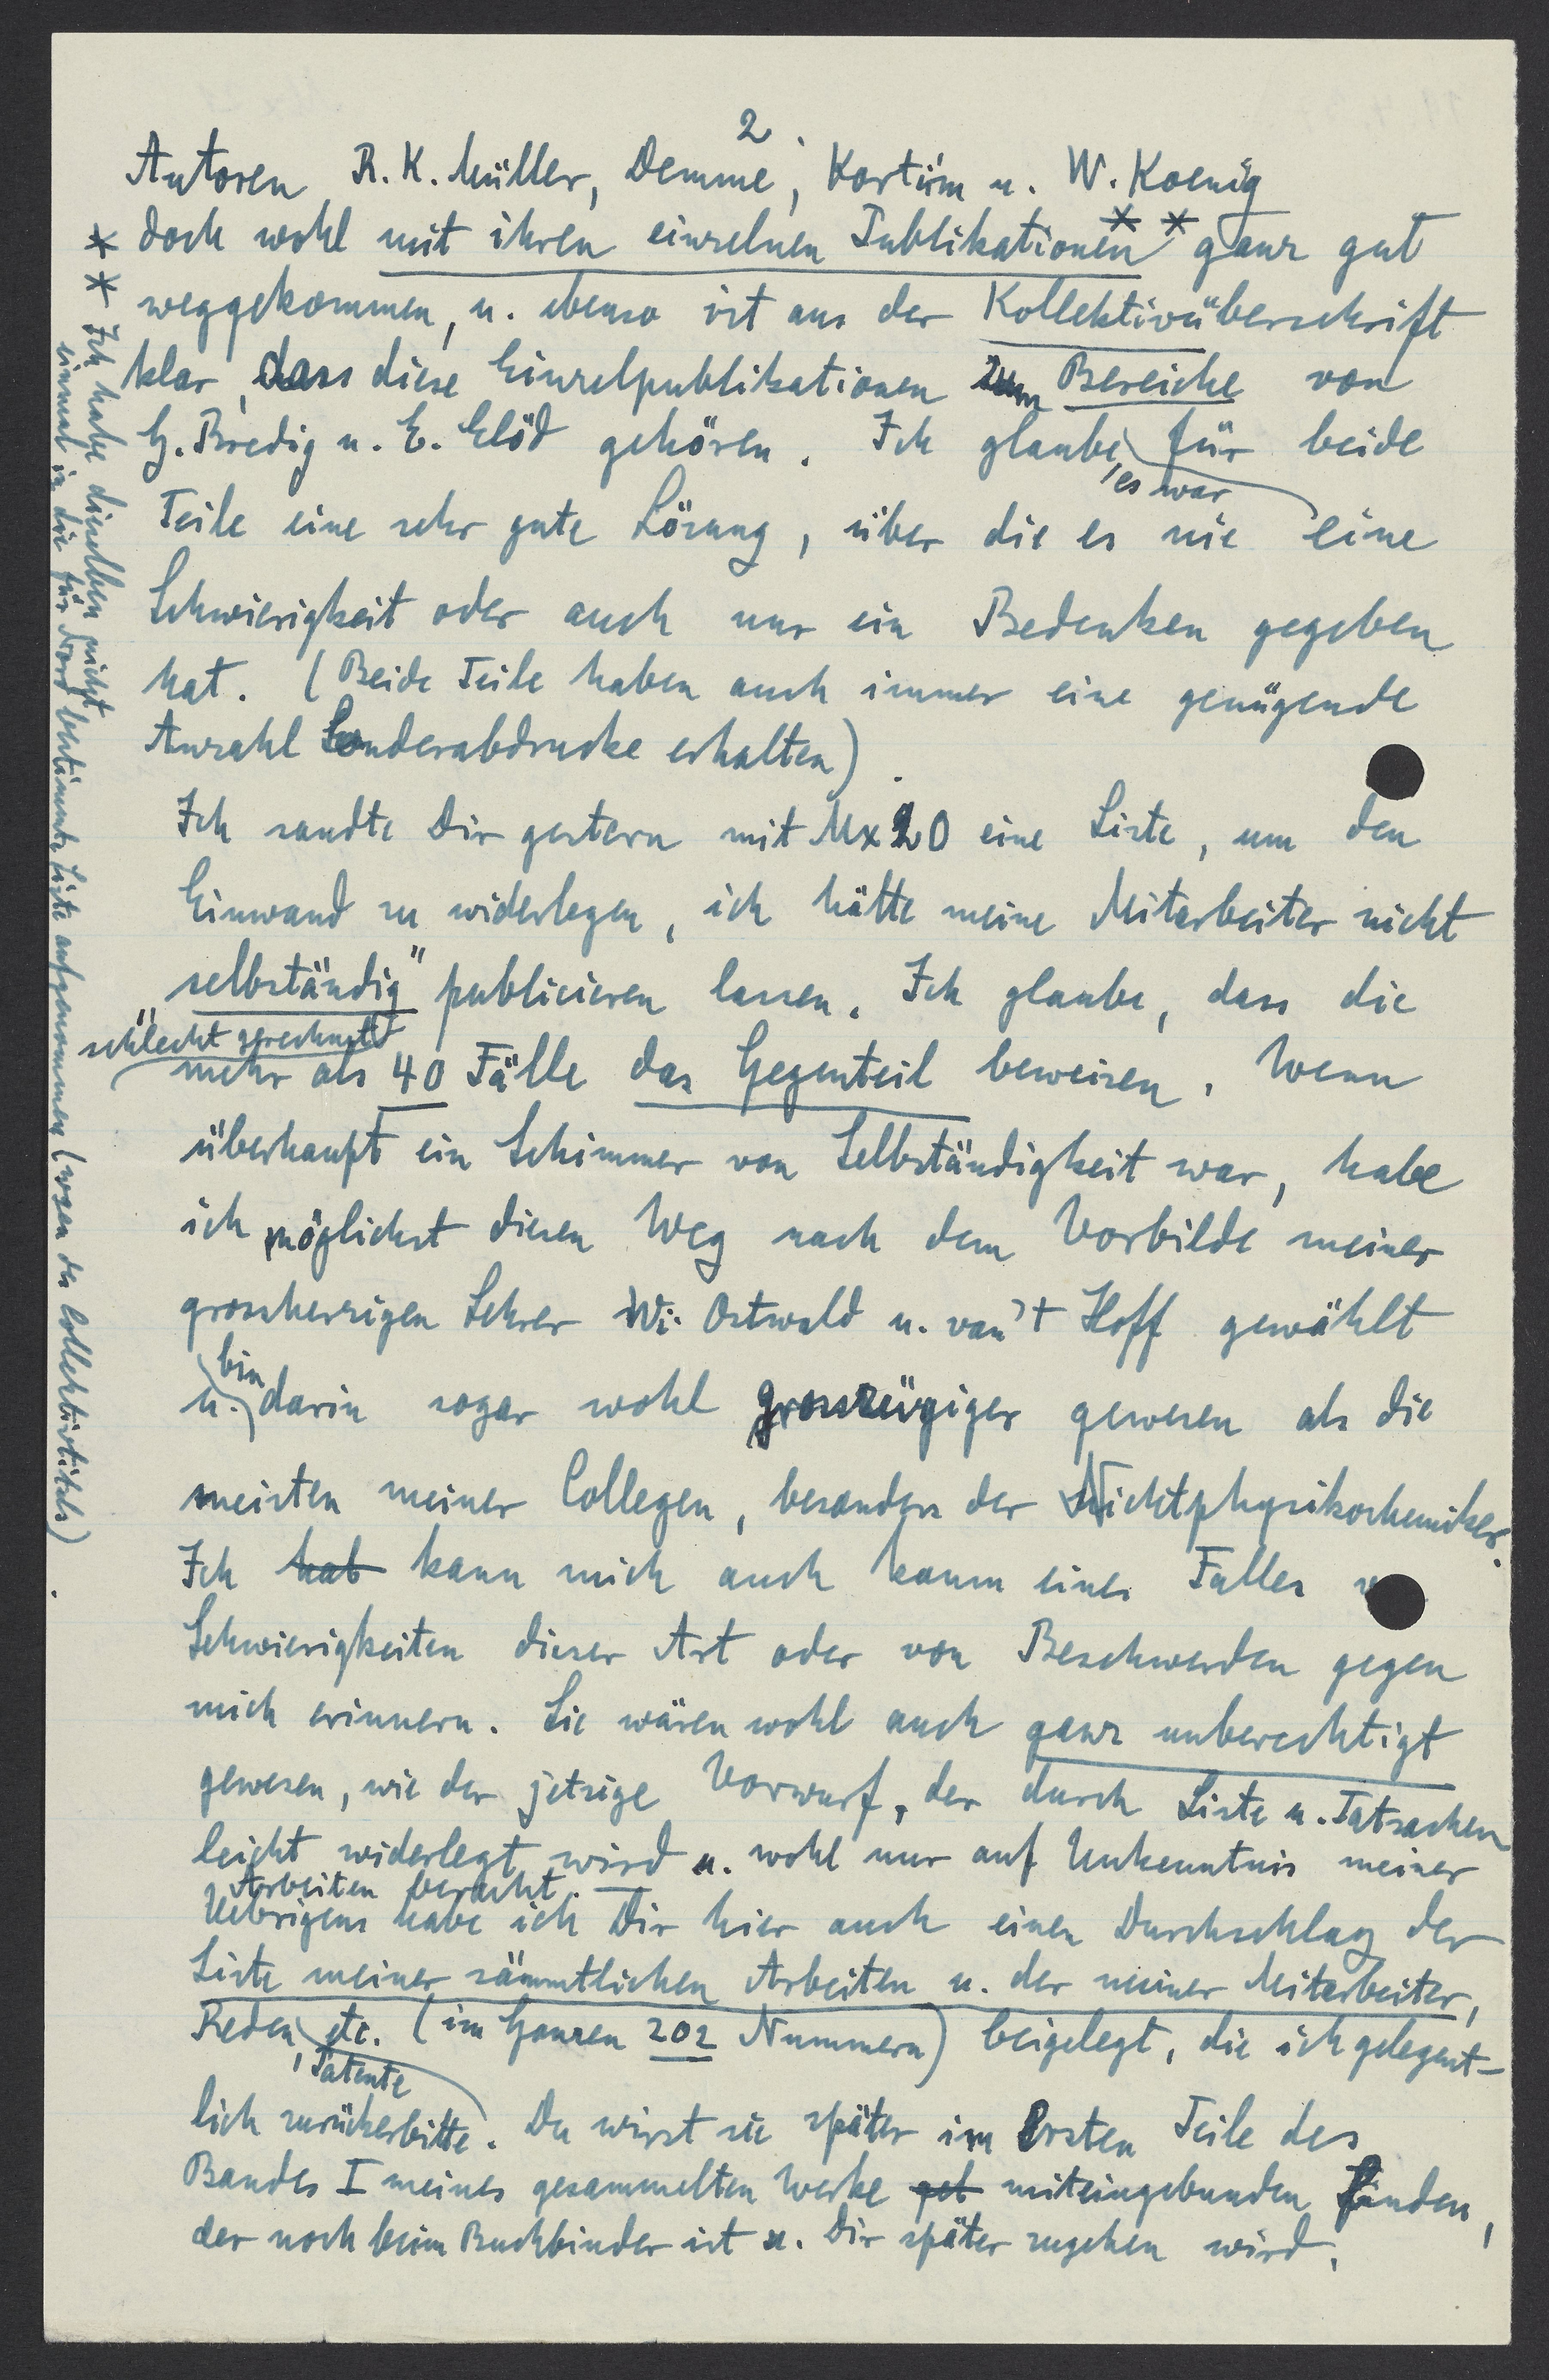 2.
Autoren R. K. Müller, Demme, Kortüm u. W. Koenig
doch wohl mit ihren einzelnen Publikationen ** ganz gut
weggekommen, u. ebenso ist aus der Kollektivüberschrift
klar, dass diese Einzelpublikationen zum Bereiche von
G. Bredig u. E. Elöd gehören. Ich glaube, es war für beide
Teile eine sehr gute Lösung, über die es nie eine
Schwierigkeit oder auch nur ein Bedenken gegeben
hat. (Beide Teile haben auch immer eine genügende
Anzahl Sonderabdrucke erhalten).
Ich sandte Dir gestern mit Mx20 eine Liste, um den
Einwand zu widerlegen, ich hätte meine Mitarbeiter nicht
„selbständig" publicieren lassen. Ich glaube, dass die
schlecht gerechnet
mehr als 40 Fälle das Gegenteil beweisen. Wenn
überhaupt ein Schimmer von Selbständigkeit war, habe
ich möglichst diesen Weg nach dem Vorbilde meiner
grossherzigen Lehrer Wi. Ostwald u. van't Hoff gewählt
u. bin darin sogar wohl grosszügiger gewesen als die
meisten meiner Collegen, besonders der Nichtphysikochemiker.
Ich hab kann mich auch kaum eines Falles
Schwierigkeiten dieser Art oder von Beschwerden gegen
mich erinnern. Sie wären wohl auch ganz unberechtigt
gewesen, wie der jetzige Vorwurf, der durch Liste u. Tatsachen
leicht widerlegt wird u. wohl nur auf Unkenntnis meiner
Arbeiten beruht.
Uebrigens habe ich Dir hier auch einen Durchschlag der
Liste meiner sämmtlichen Arbeiten u. der meiner Mitarbeiter,
Reden, Patente etc. (im Ganzen 202 Nummern) beigelegt, die ich gelegent-
lich zurückerbitte. Du wirst sie später im Ersten Teile des
Bandes I meines gesammelten Werke geb miteingebunden finden,
der noch beim Buchbinder ist u. Dir später zugehen wird.
** Ich habe dieselben nicht
einmal in die für Nord bestimmte Liste aufgenommen (wegen des Collektivtitels).